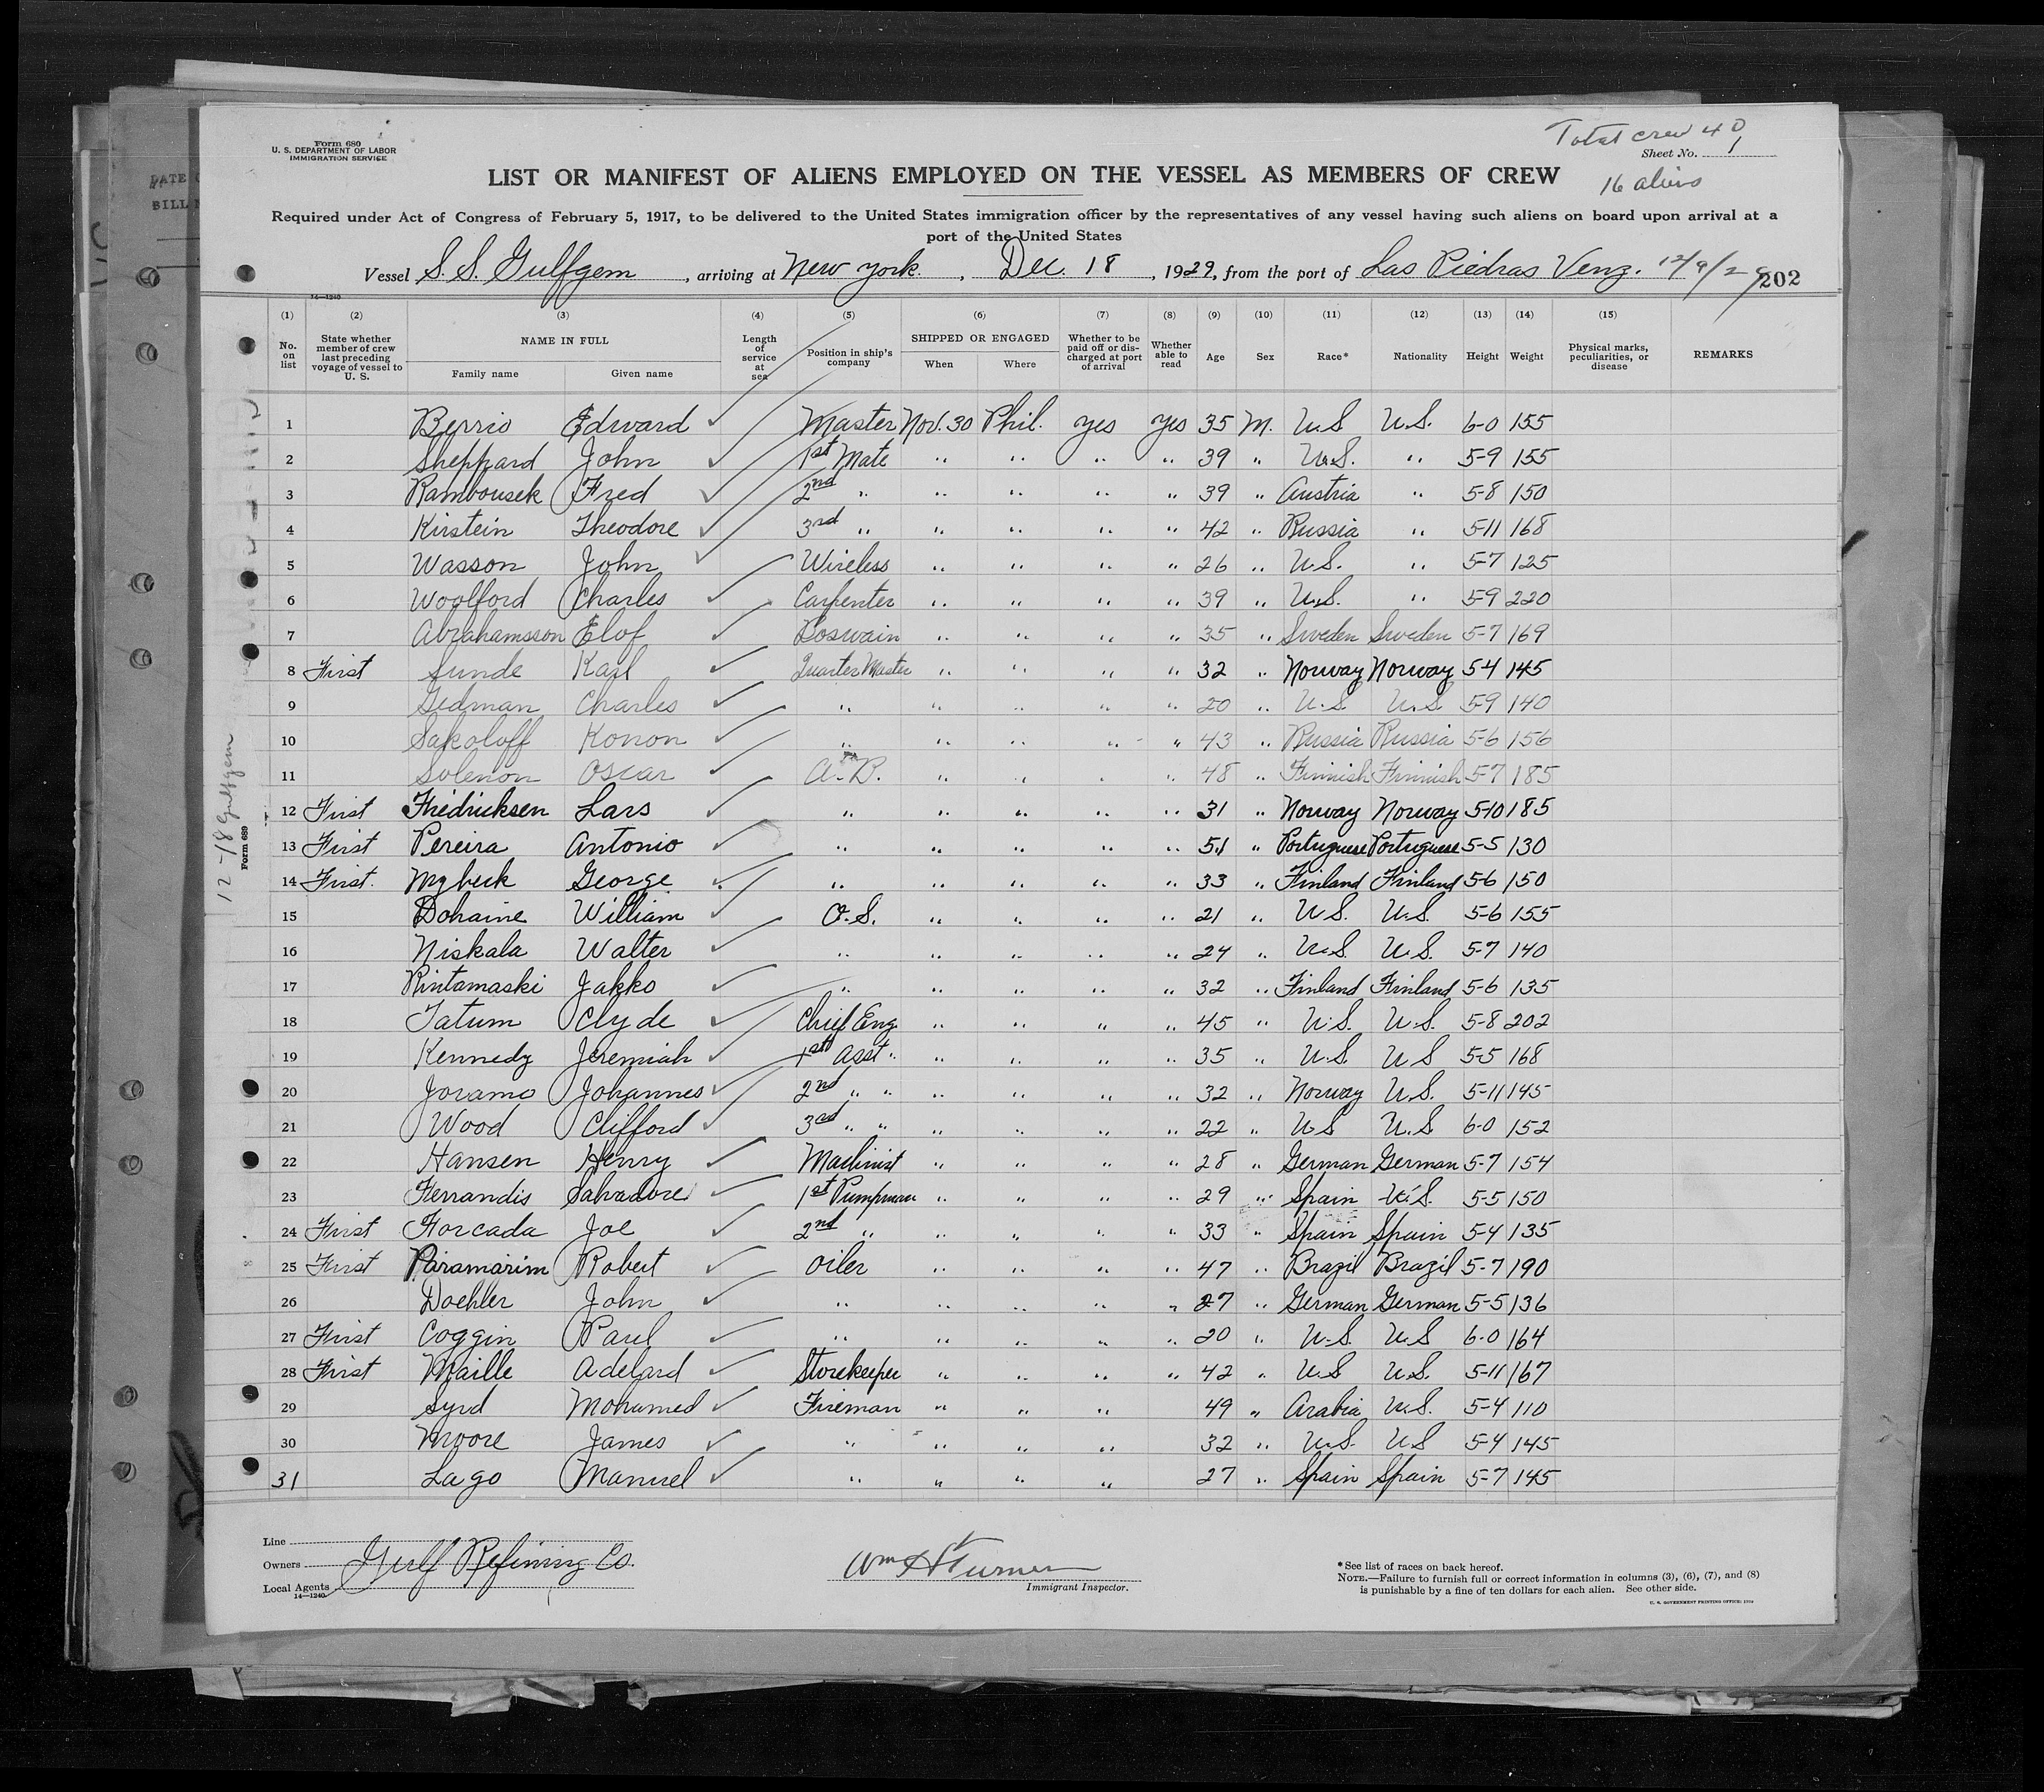 Total crew 40
Form 680
U. S. DEPARTMENT OF LABOR
IMMIGRATION SERVICE
Sheet No. 1
LIST OR MANIFEST OF ALIENS EMPLOYED ON THE VESSEL AS MEMBERS OF CREW
16 aliens
Required under Act of Congress of February 5, 1917, to be delivered to the United States immigration officer by the representatives of any vessel having such aliens on board upon arrival at a
port of the United States
Vessel S. S. Gulfgem, arriving at New York, Dec. 18, 1929, from the port of Las Piedras Venz. 12/9/29
202
14—1240
(1) (2) (3) (4) (5) (6) (7) (8) (9) (10) (11) (12) (13) (14) (15)
No. on list
State whether member of crew last preceding voyage of vessel to U. S.
NAME IN FULL
Family name
Given name
Length of service at sea
Position in ship's company
SHIPPED OR ENGAGED
When
Where
Whether to be paid off or discharged at port of arrival
Whether able to read
Age
Sex
Race*
Nationality
Height
Weight
Physical marks, peculiarities, or disease
REMARKS
1 Berrio Edward ✓ Master Nov. 30 Phil. yes yes 35 M. U.S U.S. 6-0 155
2 Sheppard John ✓ 1st Mate " " " " 39 " U.S. " 5-9 155
3 Rambousek Fred ✓ 2nd " " " " " 39 " Austria " 5-8 150
4 Kirstein Theodore ✓ 3rd " " " " " 42 " Russia " 5-11 168
5 Wasson John ✓ Wireless " " " " 26 " U.S. " 5-7 125
6 Woolford Charles ✓ Carpenter " " " " 39 " U.S. " 5-9 220
7 Abrahamsson Elof ✓ Boswain " " " " 35 " Sweden Sweden 5-7 169
8 First Sunde Karl ✓ Quarter Master " " " " 32 " Norway Norway 5-4 145
9 Gedman Charles ✓ " " " " " 20 " U.S. U.S 5-9 140
10 Sakoloff Konon ✓ " " " " " 43 " Russia Russia 5-6 156
11 Solenon Oscar ✓ A.B. " " " " 48 " Finnish Finnish 5-7 185
12 First Fredricksen Lars ✓ " " " " " 31 " Norway Norway 5-10 185
13 First Pereira Antonio ✓ " " " " " 51 " Portuguese Portuguese 5-5 130
14 First. George ✓ " " " " " 33 " Finland Finland 5-6 150
15 Dohaine William ✓ O.S. " " " " 21 " U.S. U.S. 5-6 155
16 Niskala Walter ✓ " " " " " 24 " U.S. U.S. 5-7 140
17 Rintamaski Jakko ✓ " " " " " 32 " Finland Finland 5-6 135
18 Tatum Clyde ✓ Chief Eng. " " " " 45 " U.S. U.S. 5-8 202
19 Kennedy Jeremiah ✓ 1st Asst " " " " " 35 " U.S. U.S 5-5 168
20 Joramo Johannes ✓ 2nd " " " " " " 32 " Norway U.S. 5-11 145
21 Wood Clifford ✓ 3rd " " " " " " 22 " U.S U.S 6-0 152
22 Hansen Henry ✓ Machinist " " " " 28 " German German 5-7 154
23 Ferrandis Salvadore ✓ 1st Pumpman " " " " 29 " Spain U.S. 5-5 150
24 First Forcada Joe ✓ 2nd " " " " " 33 " Spain Spain 5-4 135
25 First Paramarim Robert ✓ Oiler " " " " 47 " Brazil Brazil 5-7 190
26 Doehler John ✓ " " " " " 27 " German German 5-5 136
27 First Coggin Paul ✓ " " " " " 20 " U.S. U.S 6-0 164
28 First Maille Adelard ✓ Storekeeper " " " " 42 " U.S U.S. 5-11 167
29 Syrd Mohamed ✓ Fireman " " " 49 " Arabia U.S. 5-4 110
30 Moore James ✓ " " " " 32 " U.S. U.S 5-4 145
31 Lago Manuel ✓ " " " " 27 " Spain Spain 5-7 145
12-18 Gulfgem
Form 689
Line
Owners Gulf Refining Co.
Local Agents
14—1240
Wm H Turner
Immigrant Inspector.
*See list of races on back hereof.
NOTE.—Failure to furnish full or correct information in columns (3), (6), (7), and (8)
is punishable by a fine of ten dollars for each alien. See other side.
U. S. GOVERNMENT PRINTING OFFICE: